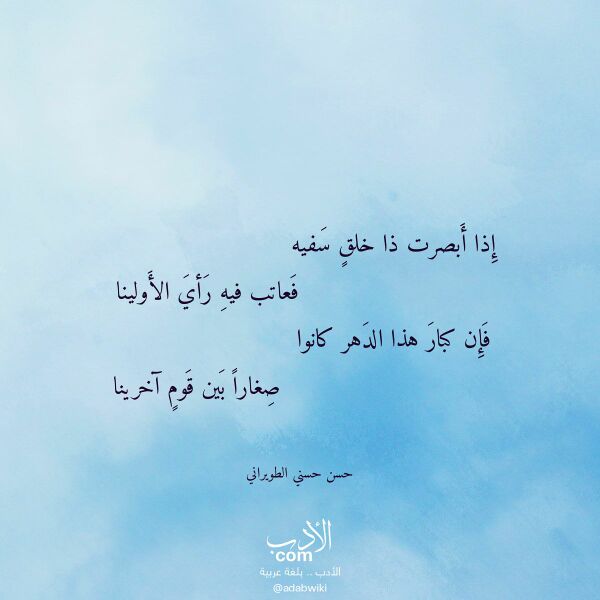 إِذا أَبصرت ذا خلقٍ سَفيه
فَعاتب فيهِ رَأيَ الأَولينا
فَإِن كبارَ هذا الدَهر كانوا
صِغاراً بَين قَومٍ آخرينا
حسن حسني الطويراني
الأدب
com
الأدب .. بلغة عربية
@adabwiki